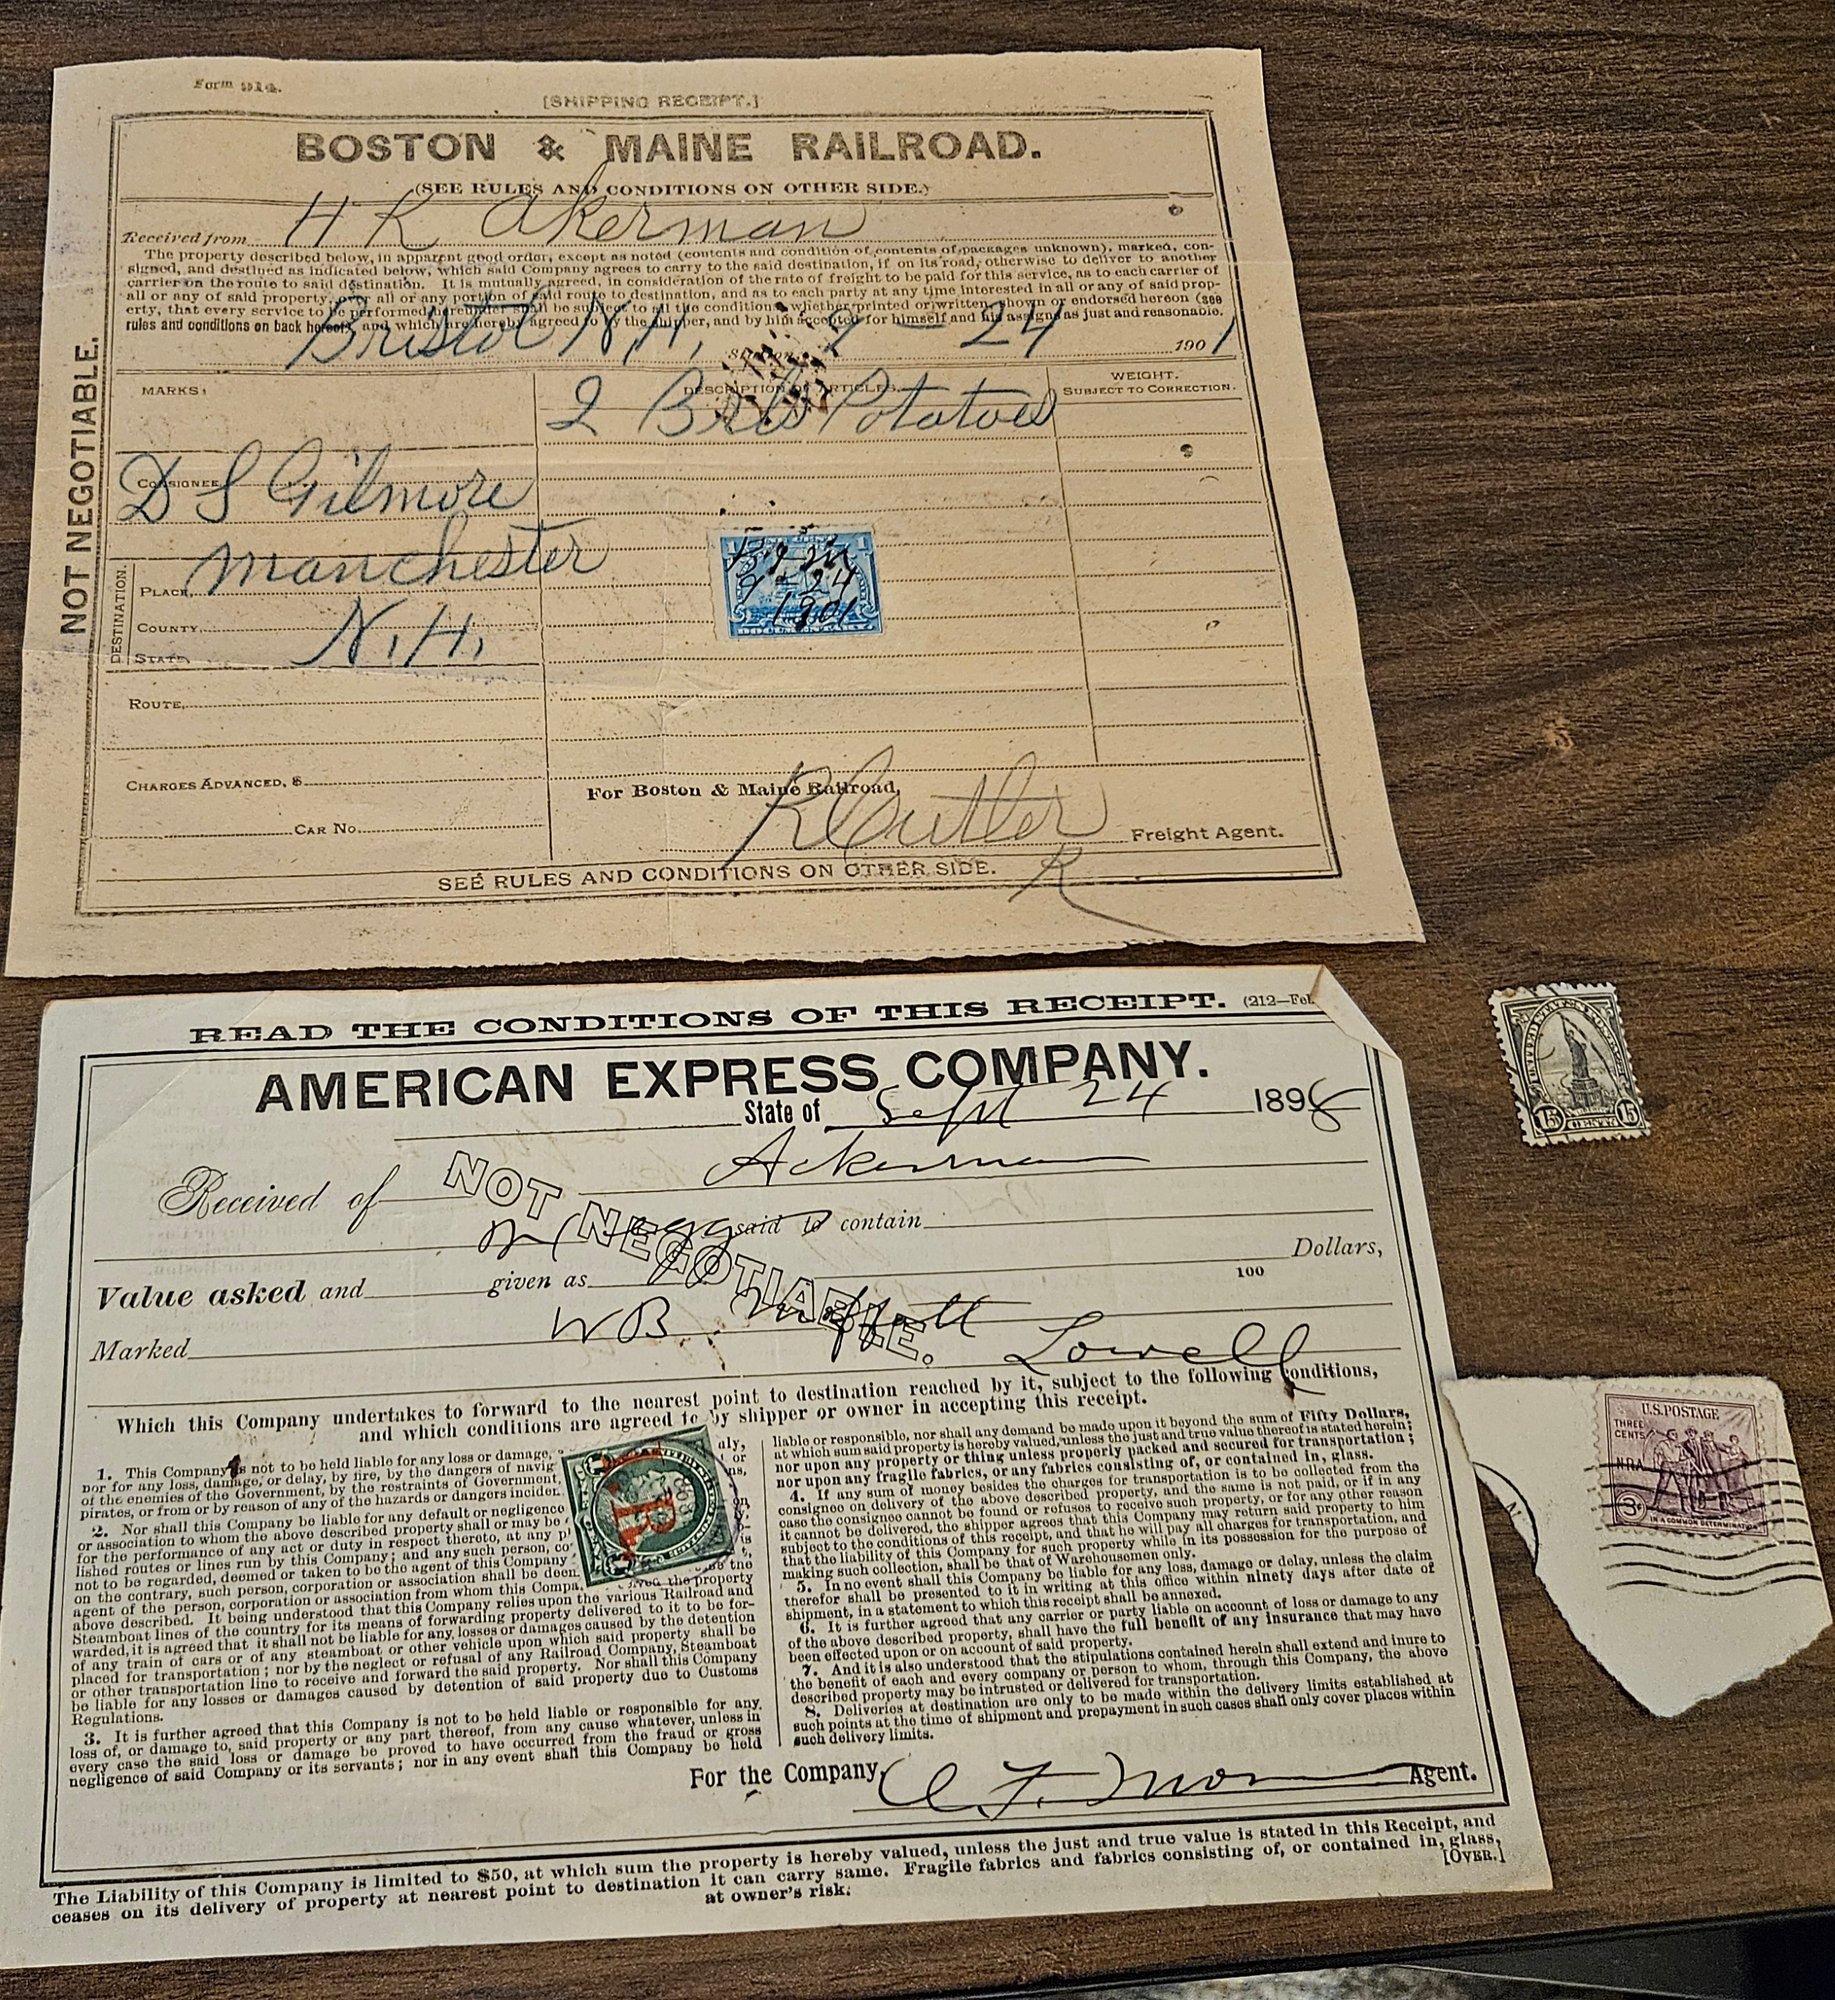 Form 914.
[SHIPPING RECEIPT.]
BOSTON & MAINE RAILROAD.
(SEE RULES AND CONDITIONS ON OTHER SIDE.)
Received from H K Akerman
The property described below, in apparent good order, except as noted (contents and condition of contents of packages unknown), marked, con-
signed, and destined as indicated below, which said Company agrees to carry to the said destination, if on its road, otherwise to deliver to another
carrier on the route to said destination. It is mutually agreed, in consideration of the rate of freight to be paid for this service, as to each carrier of
all or any of said property, over all or any portion of said route to destination, and as to each party at any time interested in all or any of said prop-
erty, that every service to be performed hereunder shall be subject to all the conditions, whether printed or written, shown or endorsed hereon (see
rules and conditions on back hereof), and which are hereby agreed to by the shipper, and by him accepted for himself and his assigns as just and reasonable.
Bristol N.H. Station, 9-24 1901
NOT NEGOTIABLE.
MARKS:
DESCRIPTION OF ARTICLES.
WEIGHT.
SUBJECT TO CORRECTION.
2 Brls Potatoes
CONSIGNEE,
D S Gilmore
DESTINATION.
PLACE, Manchester
COUNTY,
STATE, N.H.
1 1
9-24
1901
DOCUMENTARY
ROUTE,
CHARGES ADVANCED, $
CAR NO.
For Boston & Maine Railroad,
R Cutler
Freight Agent.
K
SEE RULES AND CONDITIONS ON OTHER SIDE.
READ THE CONDITIONS OF THIS RECEIPT. (212—Feb.
AMERICAN EXPRESS COMPANY.
State of Sept 24 1898
Received of Ackerman
NOT NEGOTIABLE.
said to contain
Value asked and given as 100 Dollars,
Marked W B Lowell
Which this Company undertakes to forward to the nearest point to destination reached by it, subject to the following conditions,
and which conditions are agreed to by shipper or owner in accepting this receipt.
1. This Company is not to be held liable for any loss or damage,
nor for any loss, damage, or delay, by fire, by the dangers of navig
of the enemies of the Government, by the restraints of Government,
pirates, or from or by reason of any of the hazards or dangers inciden
2. Nor shall this Company be liable for any default or negligence
or association to whom the above described property shall or may be
for the performance of any act or duty in respect thereto, at any pl
lished routes or lines run by this Company; and any such person, co
not to be regarded, deemed or taken to be the agent of this Company
on the contrary, such person, corporation or association shall be deem
agent of the person, corporation or association from whom this Compa ived the property
above described. It being understood that this Company relies upon the various Railroad and
Steamboat lines of the country for its means of forwarding property delivered to it to be for-
warded, it is agreed that it shall not be liable for any losses or damages caused by the detention
of any train of cars or of any steamboat or other vehicle upon which said property shall be
placed for transportation; nor by the neglect or refusal of any Railroad Company, Steamboat
or other transportation line to receive and forward the said property. Nor shall this Company
be liable for any losses or damages caused by detention of said property due to Customs
Regulations.
3. It is further agreed that this Company is not to be held liable or responsible for any
loss of, or damage to, said property or any part thereof, from any cause whatever, unless in
every case the said loss or damage be proved to have occurred from the fraud or gross
negligence of said Company or its servants; nor in any event shall this Company be held
liable or responsible, nor shall any demand be made upon it beyond the sum of Fifty Dollars,
at which sum said property is hereby valued, unless the just and true value thereof is stated herein;
nor upon any property or thing unless properly packed and secured for transportation;
nor upon any fragile fabrics, or any fabrics consisting of, or contained in, glass.
4. If any sum of money besides the charges for transportation is to be collected from the
consignee on delivery of the above described property, and the same is not paid, or if in any
case the consignee cannot be found or refuses to receive such property, or for any other reason
it cannot be delivered, the shipper agrees that this Company may return said property to him
subject to the conditions of this receipt, and that he will pay all charges for transportation, and
that the liability of this Company for such property while in its possession for the purpose of
making such collection, shall be that of Warehousemen only.
5. In no event shall this Company be liable for any loss, damage or delay, unless the claim
therefor shall be presented to it in writing at this office within ninety days after date of
shipment, in a statement to which this receipt shall be annexed.
6. It is further agreed that any carrier or party liable on account of loss or damage to any
of the above described property, shall have the full benefit of any insurance that may have
been effected upon or on account of said property.
7. And it is also understood that the stipulations contained herein shall extend and inure to
the benefit of each and every company or person to whom, through this Company, the above
described property may be intrusted or delivered for transportation.
8. Deliveries at destination are only to be made within the delivery limits established at
such points at the time of shipment and prepayment in such cases shall only cover places within
such delivery limits.
I.R.
For the Company, Agent.
The Liability of this Company is limited to $50, at which sum the property is hereby valued, unless the just and true value is stated in this Receipt, and
ceases on its delivery of property at nearest point to destination it can carry same. Fragile fabrics and fabrics consisting of, or contained in, glass,
at owner's risk.
[OVER.]
15 CENTS 15
U.S. POSTAGE
THREE
CENTS
N.R.A.
3¢
IN A COMMON DETERMINATION